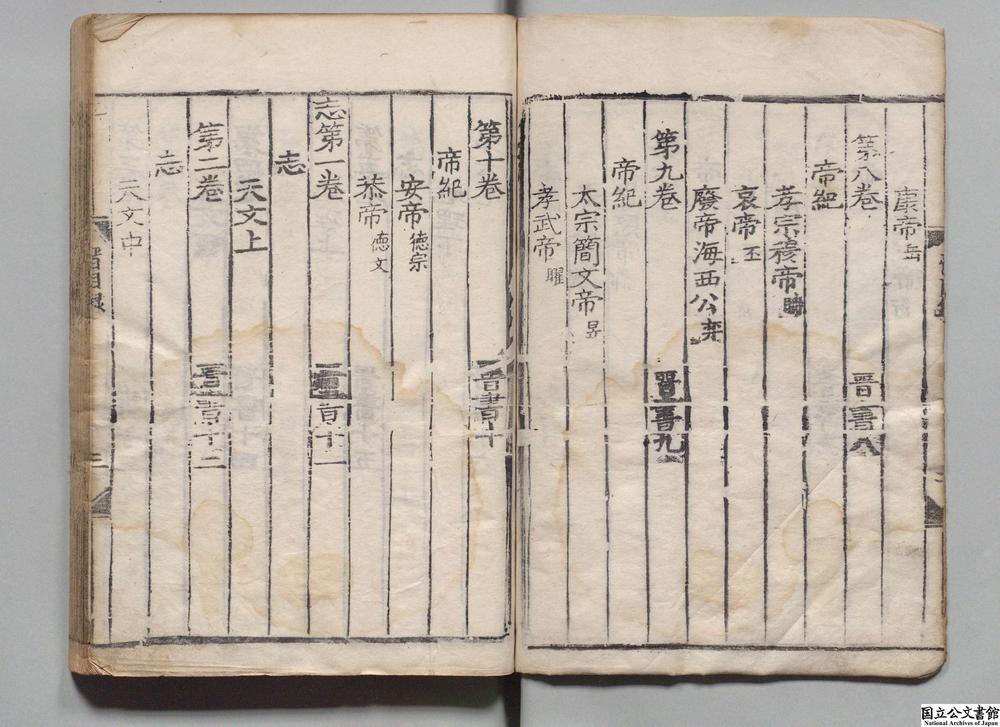 康帝 岳
第八卷 晉書八
帝紀
孝宗穆帝 聃
哀帝 丕
廢帝海西公 弈
第九卷 晉書九
帝紀
太宗簡文帝 昱
孝武帝 曜
第十卷 晉書十
帝紀
安帝 德宗
恭帝 德文
志第一卷 晉書十一
志
天文上
第二卷 晉書十二
志
天文中
晉目録
二
国立公文書館
National Archives of Japan